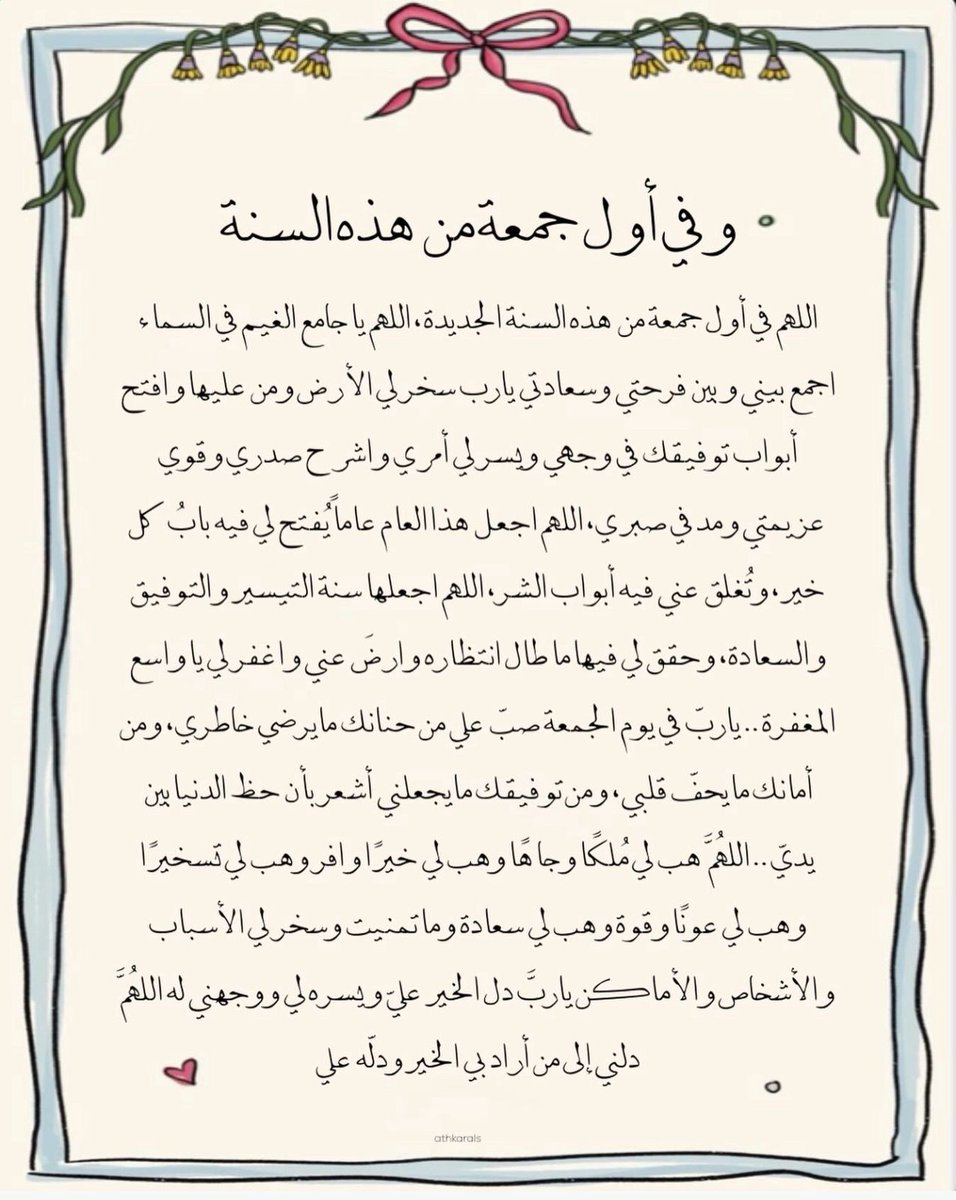 وفي أول جمعة من هذه السنة
اللهم في أول جمعة من هذه السنة الجديدة، اللهم يا جامع الغيم في السماء
اجمع بيني وبين فرحتي وسعادتي يارب سخر لي الأرض ومن عليها وافتح
أبواب توفيقك في وجهي ويسر لي أمري واشرح صدري وقوي
عزيمتي ومد في صبري، اللهم اجعل هذا العام عاماً يُفتح لي فيه بابُ كل
خير، وتُغلق عني فيه أبواب الشر، اللهم اجعلها سنة التيسير والتوفيق
والسعادة، وحقق لي فيها ما طال انتظاره وارضَ عني واغفر لي يا واسع
المغفرة.. ياربّ في يوم الجمعة صبّ علي من حنانك مايرضي خاطري، ومن
أمانك مايحفّ قلبي، ومن توفيقك مايجعلني أشعر بأن حظ الدنيا بين
يديّ.. اللهُمَّ هب لي مُلكًا وجاهًا وهب لي خيرًا وافر وهب لي تسخيرًا
وهب لي عونًا وقوة وهب لي سعادة وما تمنيت وسخر لي الأسباب
والأشخاص والأماكن ياربَّ دل الخير عليّ ويسره لي ووجهني له اللهُمَّ
دلني إلى من أراد بي الخير ودلّه علي
athkarals